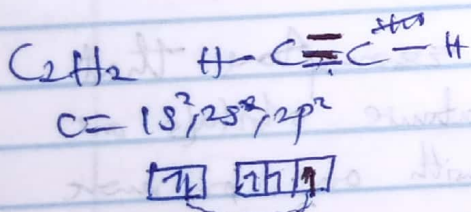 C₂H₂ H-C≡C-H
C= 1S²,2S²,2p²
↿⇂ ↿ ↿ ↿